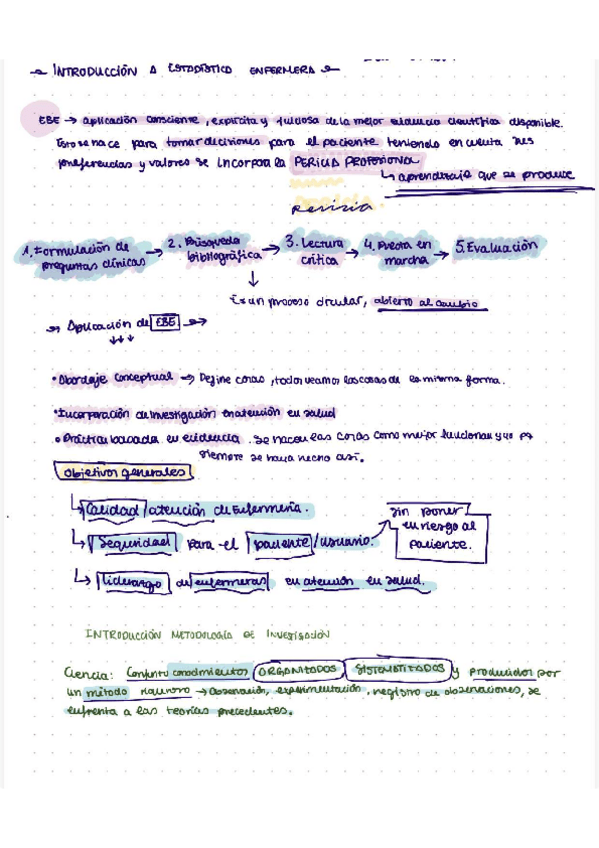 INTRODUCCIÓN A ESTADÍSTICA ENFERMERA
EBE → aplicación consciente, explícita y juiciosa de la mejor evidencia científica disponible.
Esto se hace para tomar decisiones para el paciente teniendo en cuenta sus
preferencias y valores se incorpora la PERICIA PROFESIONAL
↳ aprendizaje que se produce
1. Formulación de preguntas clínicas → 2. Búsqueda bibliográfica → 3. Lectura crítica → 4. Puesta en marcha → 5. Evaluación
Es un proceso circular, abierto al cambio
Aplicación de EBE
• Abordaje conceptual → Define cosas, todos veamos las cosas de la misma forma.
• Incorporación de investigación en atención en salud
• Práctica basada en evidencia. Se hacen las cosas como mejor funcionan y no pq
siempre se haya hecho así.
Objetivos generales
↳ Calidad / atención de Enfermería.
↳ Seguridad para el paciente / usuario.
sin poner
en riesgo al
paciente.
↳ liderazgo de enfermeras en atención en salud.
INTRODUCCIÓN METODOLOGÍA DE INVESTIGACIÓN
Ciencia: Conjunto conocimientos ORGANIZADOS SISTEMATIZADOS y producidos por
un método riguroso → observación, experimentación, registro de observaciones, se
enfrenta a las teorías precedentes.